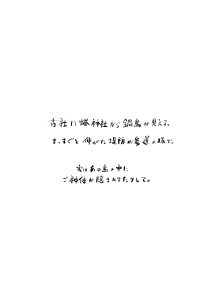 古社に嫁神社から鍋島が見えて、
まっすぐと伸びた堤防が参道の様で、
実はあの島の中に
ご神体が隠されてたりして。